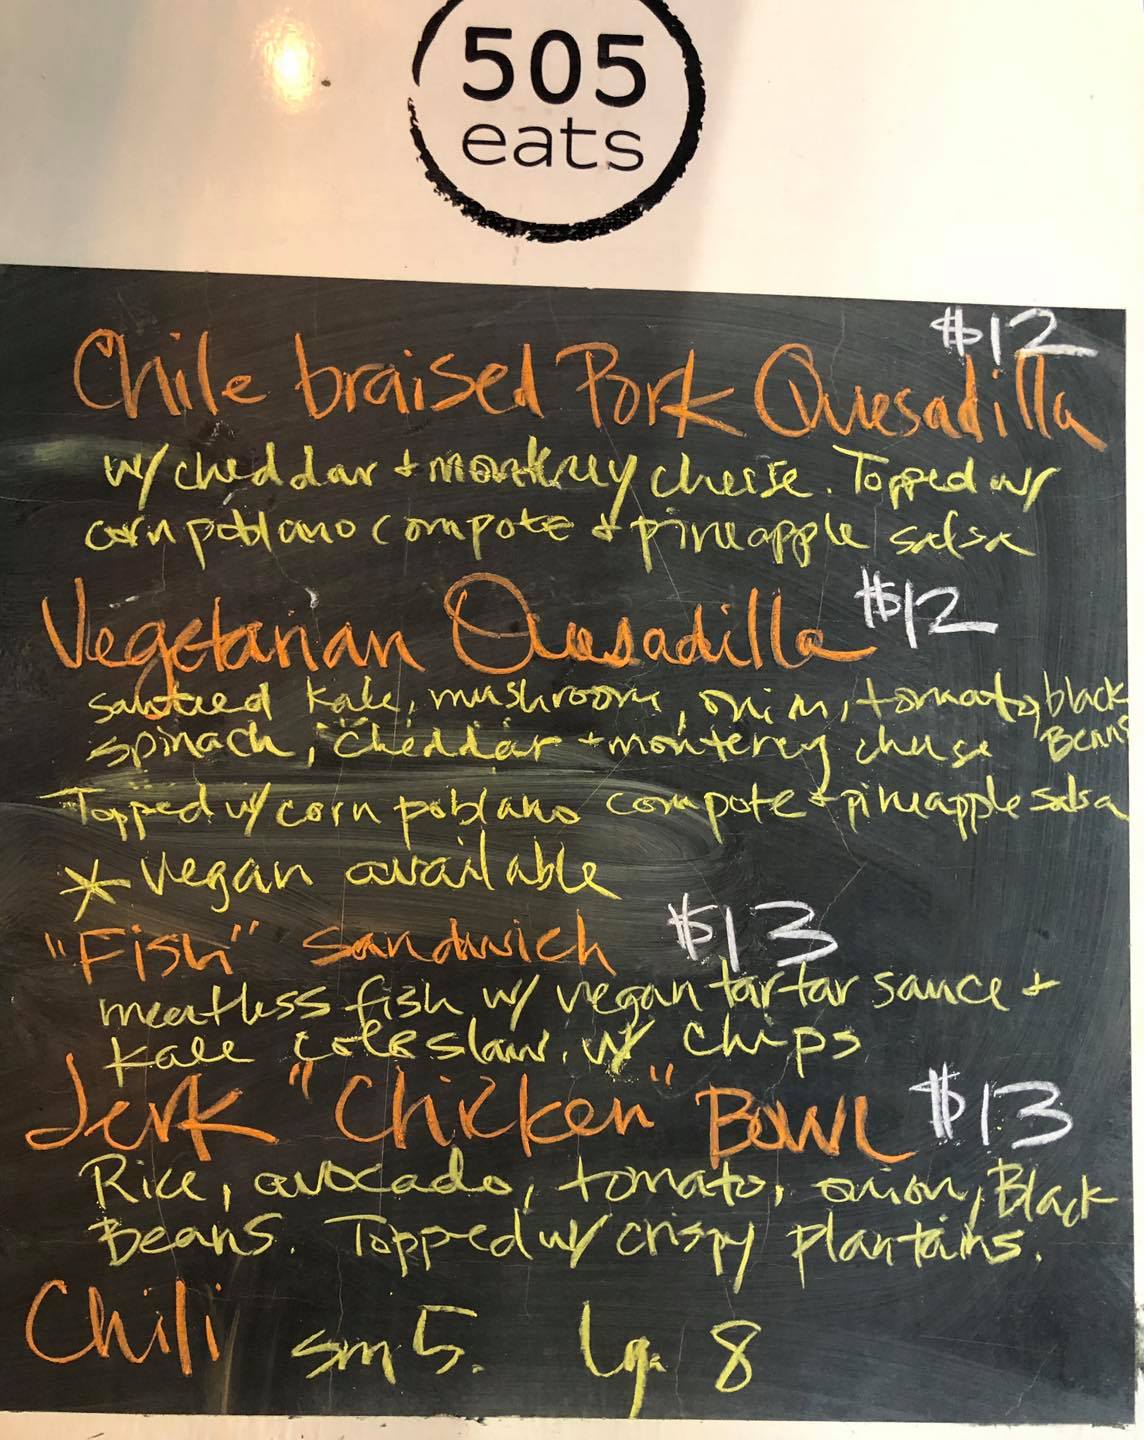 505
eats
$12
Chile braised Pork Quesadilla
w/ cheddar + monterey cheese. Topped w/
corn poblano compote + pineapple salsa
Vegetarian Quesadilla $12
sauteed kale, mushroom, onion, tomato, black
spinach, cheddar + monterey cheese Beans
Topped w/ corn poblano compote + pineapple salsa
* vegan available
"Fish" sandwich $13
meatless fish w/ vegan tartar sauce +
kale coleslaw. w/ chips
Jerk "Chicken" Bowl $13
Rice, avocado, tomato, onion, Black
Beans. Topped w/ crispy plantains.
Chili sm 5. lg. 8